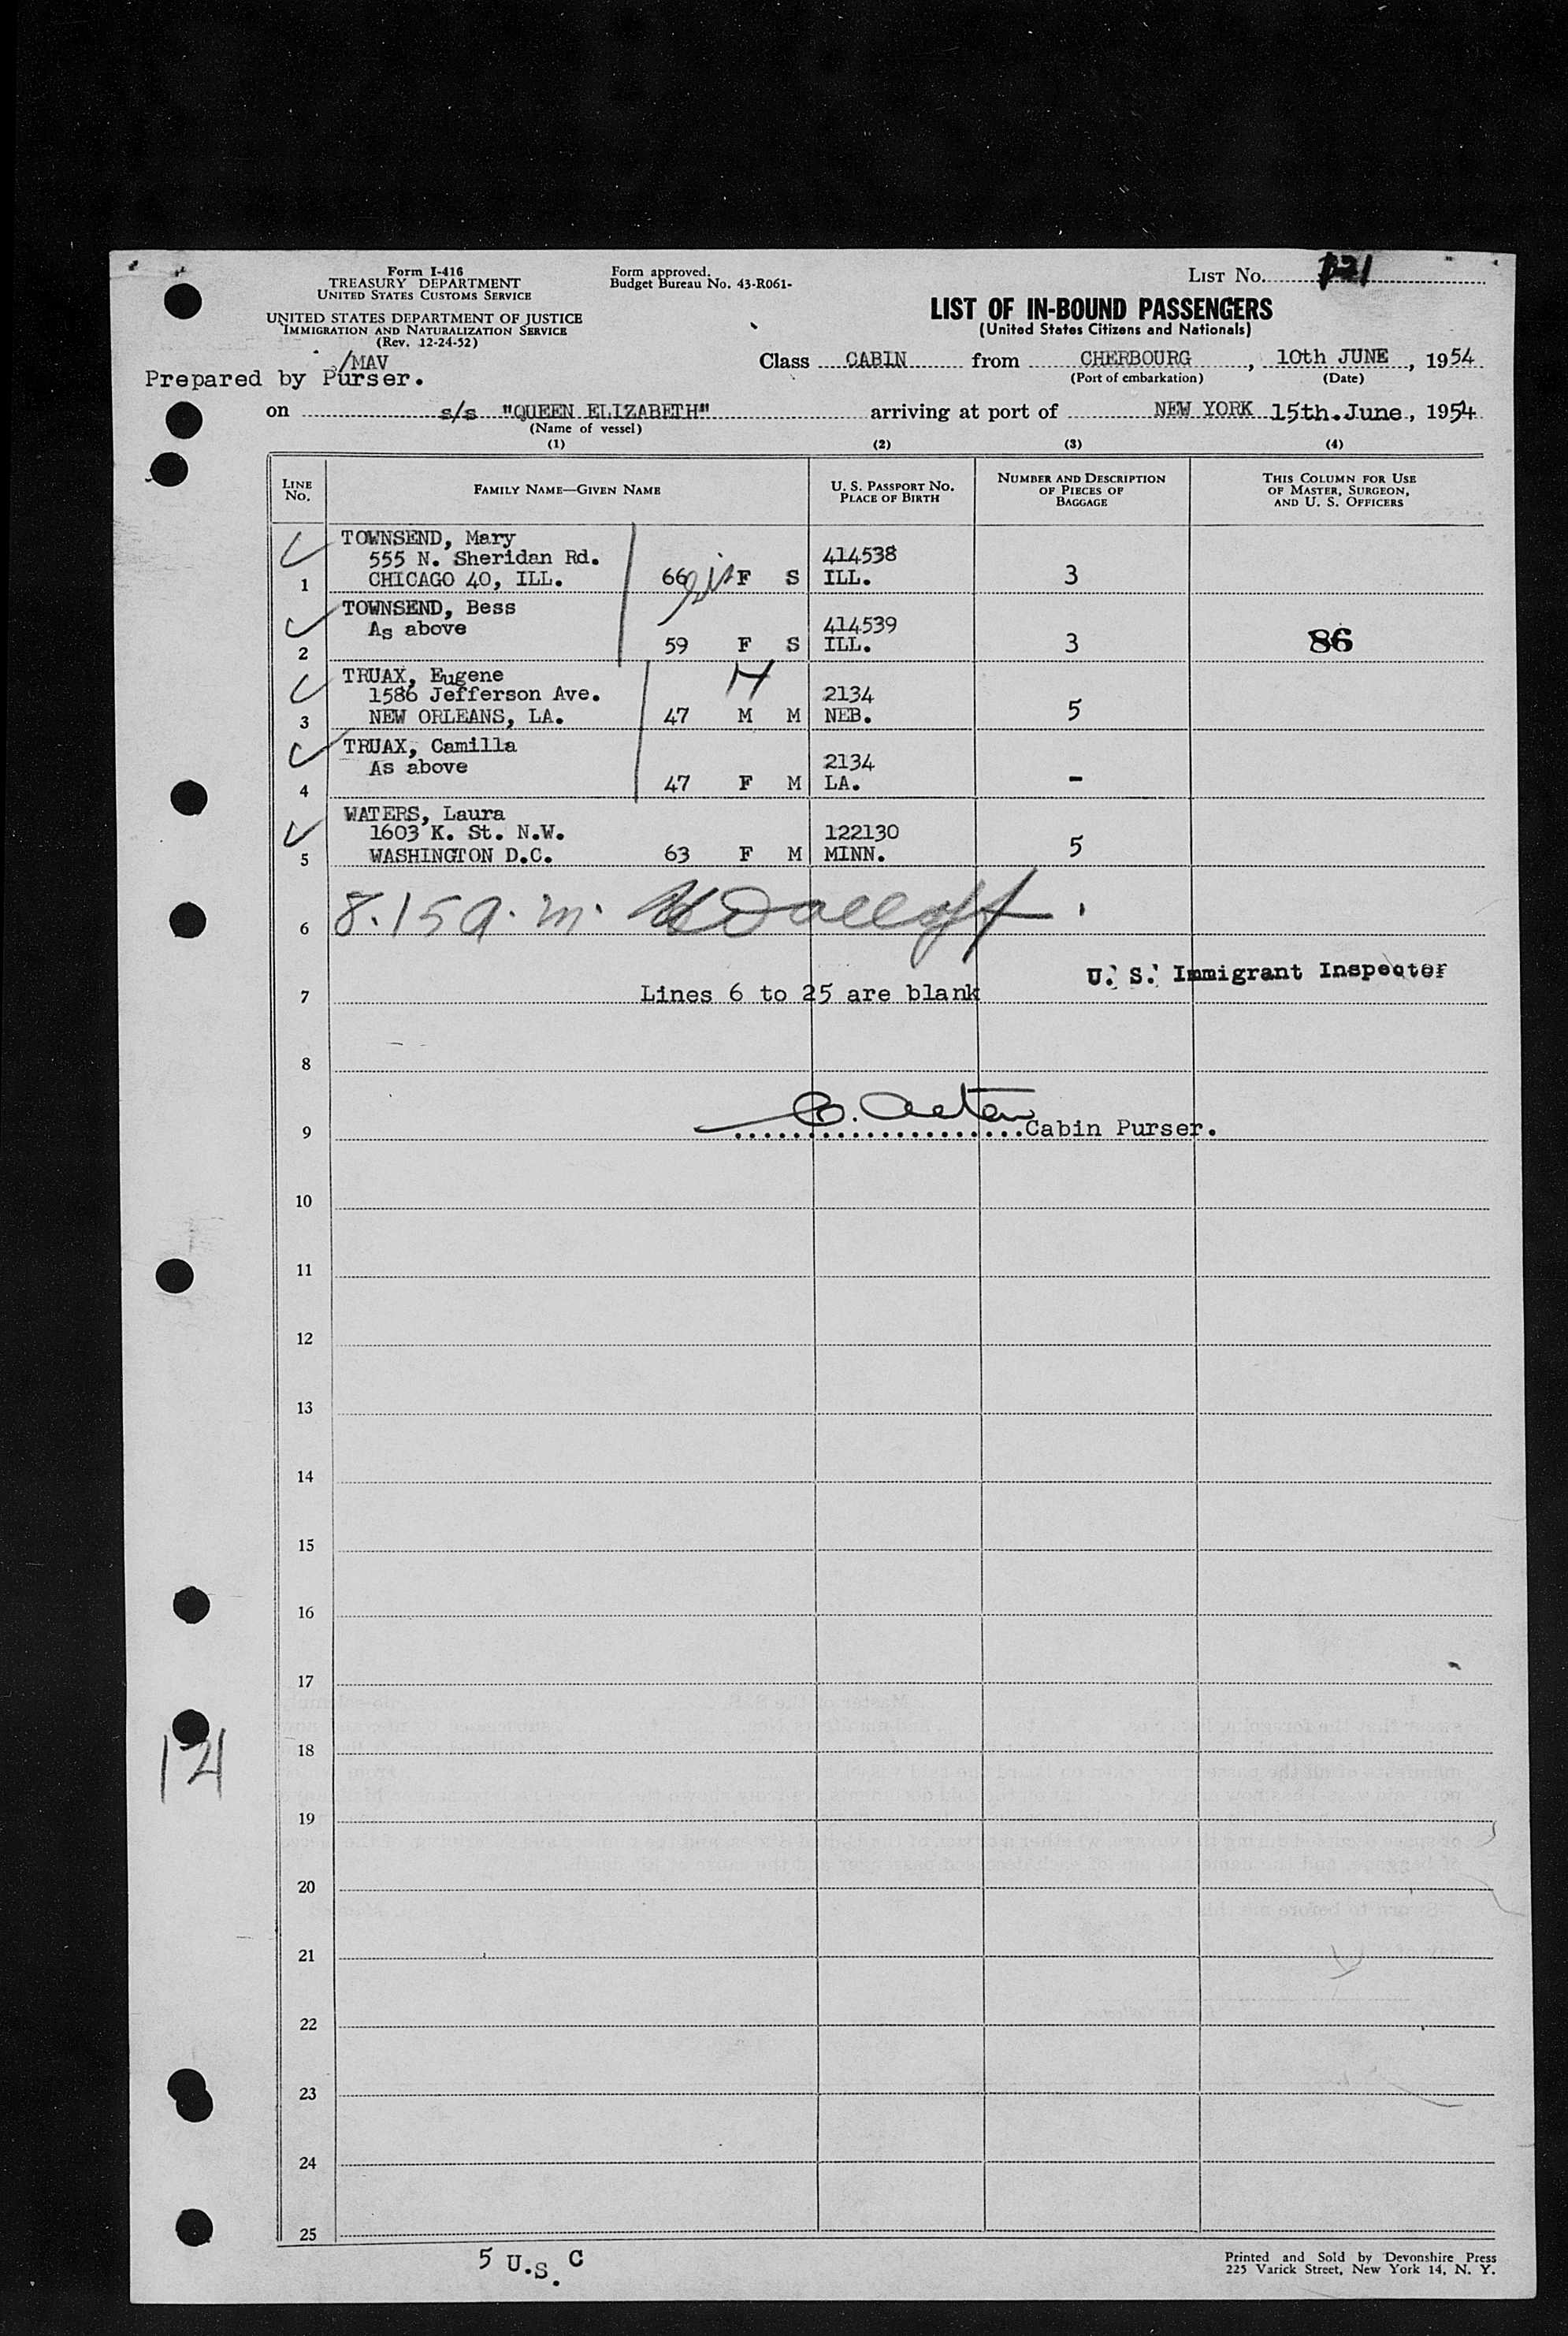 Form I-416
TREASURY DEPARTMENT
UNITED STATES CUSTOMS SERVICE
UNITED STATES DEPARTMENT OF JUSTICE
IMMIGRATION AND NATURALIZATION SERVICE
(Rev. 12-24-52)
/MAV
Prepared by Purser.
Form approved.
Budget Bureau No. 43-R061-
LIST No. 121
LIST OF IN-BOUND PASSENGERS
(United States Citizens and Nationals)
Class CABIN from CHERBOURG, 10th JUNE, 1954
(Port of embarkation) (Date)
on s/s "QUEEN ELIZABETH" arriving at port of NEW YORK 15th.June, 1954
(Name of vessel)
(1) (2) (3) (4)
LINE No. FAMILY NAME—GIVEN NAME U. S. PASSPORT No. PLACE OF BIRTH NUMBER AND DESCRIPTION OF PIECES OF BAGGAGE THIS COLUMN FOR USE OF MASTER, SURGEON, AND U. S. OFFICERS
TOWNSEND, Mary
555 N. Sheridan Rd. 414538
1 CHICAGO 40, ILL. 66 F S ILL. 3
TOWNSEND, Bess
As above 414539
2 59 F S ILL. 3 86
TRUAX, Eugene H
1586 Jefferson Ave. 2134
3 NEW ORLEANS, LA. 47 M M NEB. 5
TRUAX, Camilla
As above 2134
4 47 F M LA. -
WATERS, Laura
1603 K. St. N.W. 122130
5 WASHINGTON D.C. 63 F M MINN. 5
6 8.15 a.m.
U. S. Immigrant Inspector
7 Lines 6 to 25 are blank
8
9 Cabin Purser.
10
11
12
13
14
15
16
17
18
121
19
20
21
22
23
24
25
5 U.S.C
Printed and Sold by Devonshire Press
225 Varick Street, New York 14, N. Y.